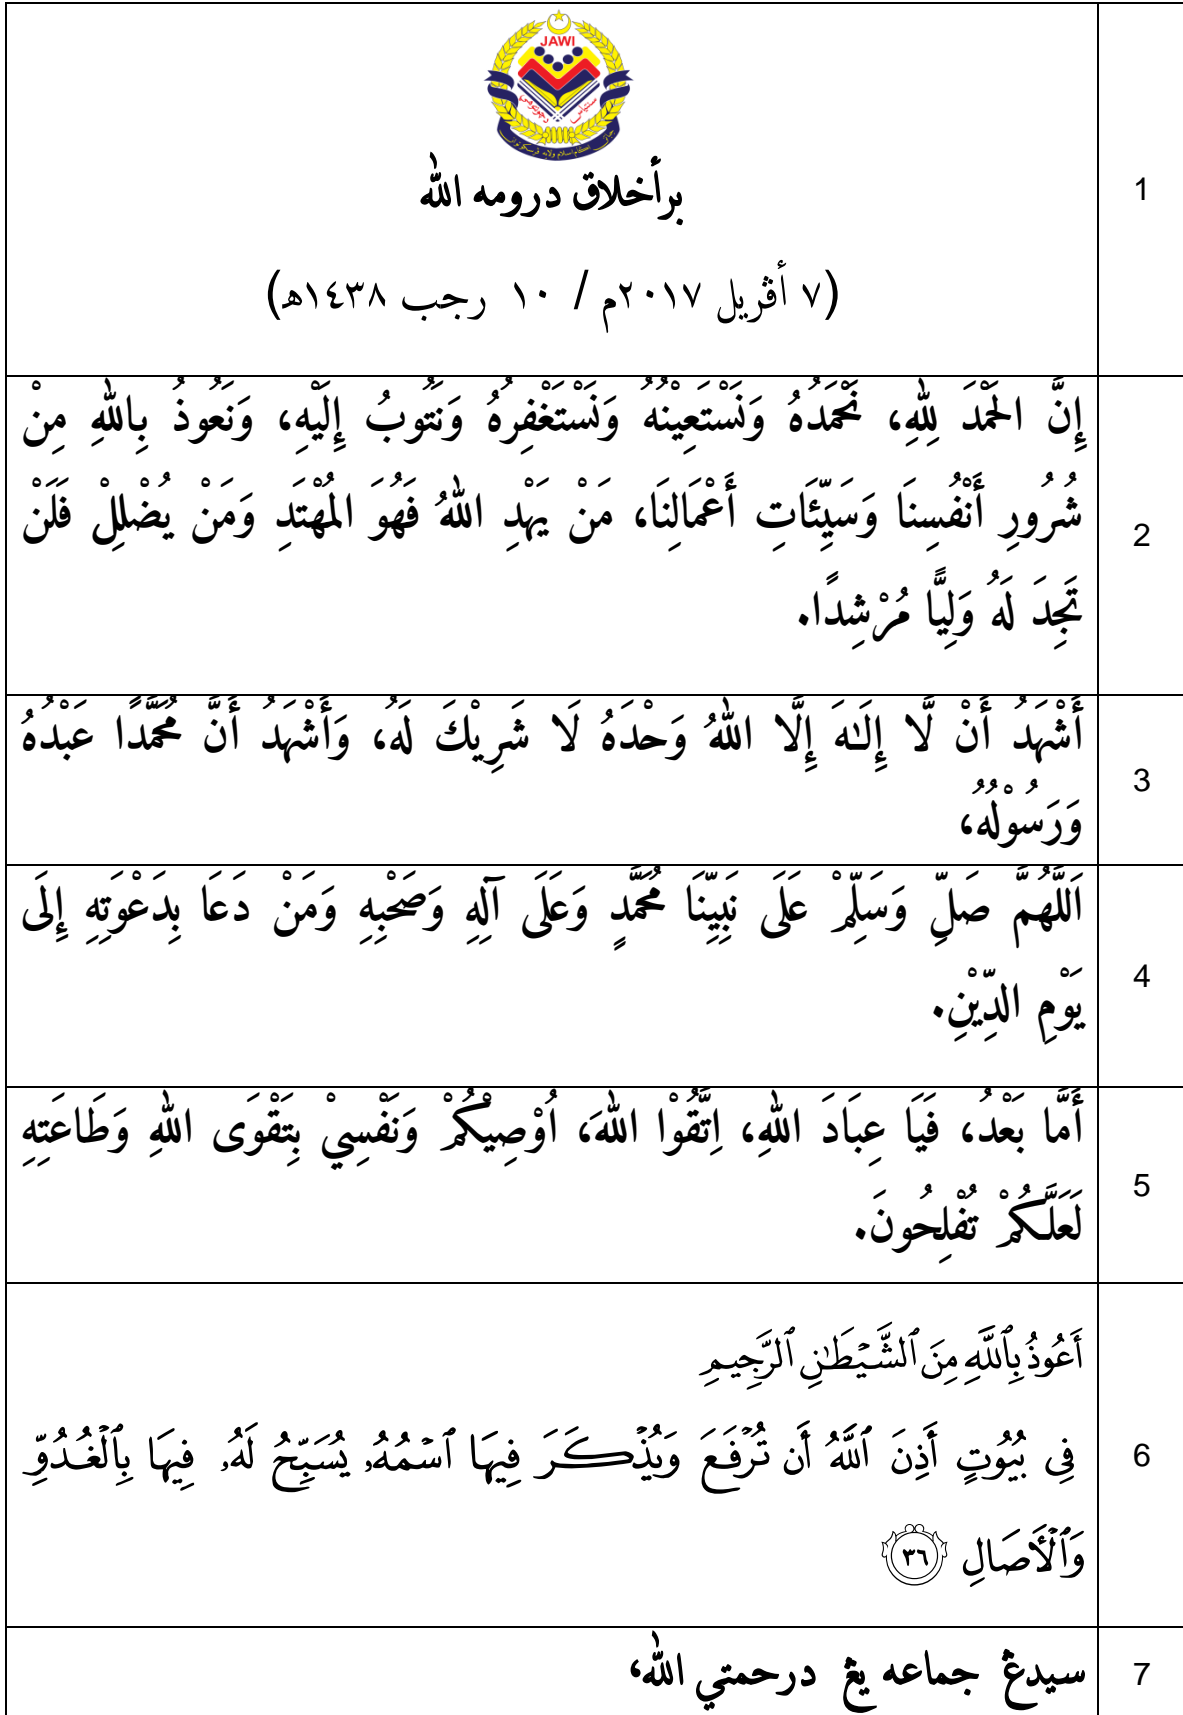 JAWI
برأخلاق درومه الله
1
(٧ أڤريل ٢٠١٧م / ١٠ رجب ١٤٣٨ھ)
إِنَّ الحَمْدَ لِلهِ، نَحْمَدُهُ وَنَسْتَعِيْنُهُ وَنَسْتَغْفِرُهُ وَنَتُوبُ إِلَيْهِ، وَنَعُوذُ بِاللهِ مِنْ
شُرُورِ أَنْفُسِنَا وَسَيِّئَاتِ أَعْمَالِنَا، مَنْ يَهْدِ اللهُ فَهُوَ المُهْتَدِ وَمَنْ يُضْلِلْ فَلَنْ
2
تَجِدَ لَهُ وَلِيًّا مُرْشِدًا.
أَشْهَدُ أَنْ لَّا إِلَـٰهَ إِلَّا اللهُ وَحْدَهُ لَا شَرِيْكَ لَهُ، وَأَشْهَدُ أَنَّ مُحَمَّدًا عَبْدُهُ
3
وَرَسُوْلُهُ،
اَللَّهُمَّ صَلِّ وَسَلِّمْ عَلَى نَبِيِّنَا مُحَمَّدٍ وَعَلَى آلِهِ وَصَحْبِهِ وَمَنْ دَعَا بِدَعْوَتِهِ إِلَى
4
يَوْمِ الدِّيْنِ.
أَمَّا بَعْدُ، فَيَا عِبَادَ اللهِ، اِتَّقُوْا اللهَ، اُوْصِيْكُمْ وَنَفْسِيْ بِتَقْوَى اللهِ وَطَاعَتِهِ
5
لَعَلَّكُمْ تُفْلِحُونَ.
أَعُوذُ بِٱللَّهِ مِنَ ٱلشَّيْطَٰنِ ٱلرَّجِيمِ
فِى بُيُوتٍ أَذِنَ ٱللَّهُ أَن تُرْفَعَ وَيُذْكَرَ فِيهَا ٱسْمُهُۥ يُسَبِّحُ لَهُۥ فِيهَا بِٱلْغُدُوِّ
6
وَٱلْءَاصَالِ ٣٦
سيدڠ جماعه يڠ درحمتي الله،
7